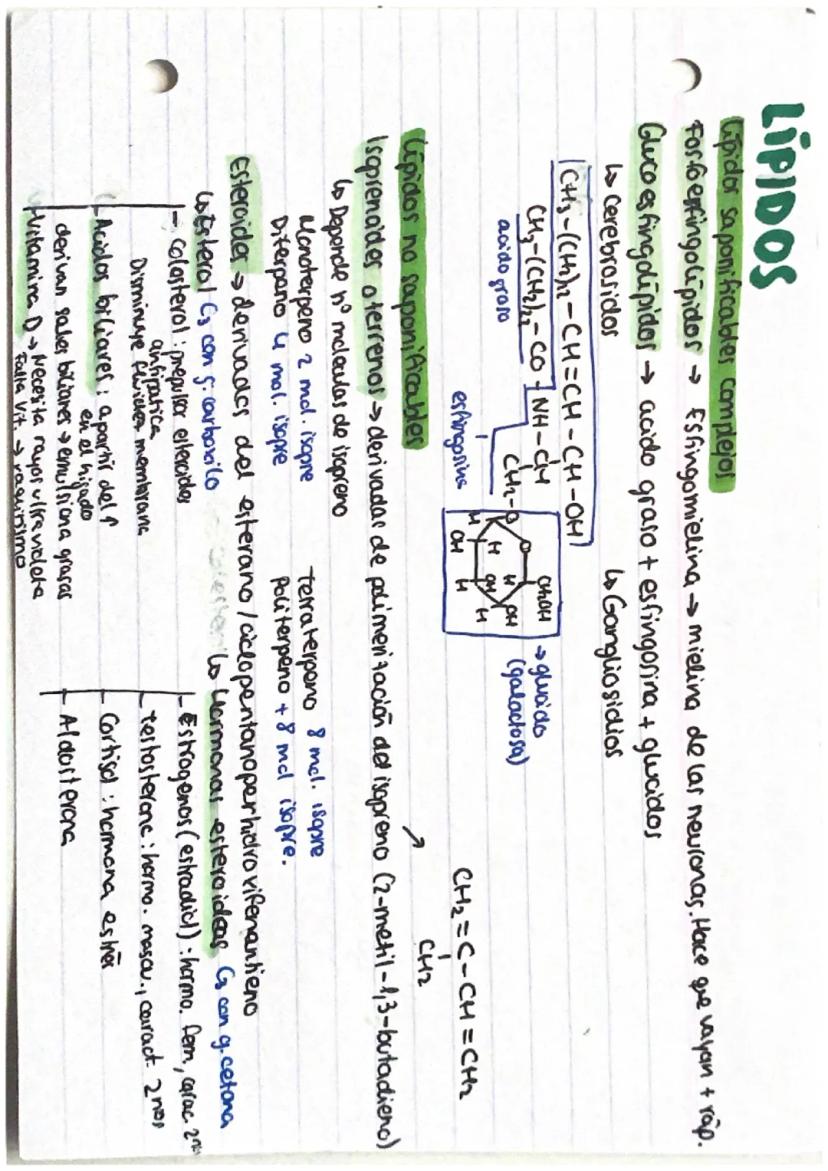 LÍPIDOS
Lípidos saponificables complejos
Fosfoesfingolípidos → Esfingomielina → mielina de las neuronas. Hace que vayan + ráp.
Glucoesfingolípidos → acido graso + esfingosina + glucidos
↳ cerebrosidos ↳ Gangliosidios
CH3-(CH2)12-CH=CH-CH-OH
CH3-(CH2)22-CO-NH-CH
acido graso
CH2-O
esfingosina
CH2OH
O
H OH H H OH H OH H
→ glucido
(galactosa)
CH2=C-CH=CH2
CH2
Lípidos no saponificables
Isoprenoides o terrenos → derivadas de polimerización del isopreno (2-metil-1,3-butadieno)
↳ Depende nº moleculas de isopreno
Monoterpeno 2 mol. isopre
Diterpeno 4 mol. isopre
Tetraterpeno 8 mol. isopre
Politerpeno + 8 mol isopre.
Esteroides → derivados del esterano/ciclopentanoperhidrovifenantieno
↳ Esterol C3 con g. carboxilo
- Colesterol: prepulor esteroides
anfipatica
Disminuye fluidez membrana
Acidos biliares: a partir del ↑
en el higado
derivan sales biliares → emulsiona grasas
Vitamina D → Necesita rayos ultravioleta
Falta Vit. → raquitismo
↳ Hormonas esteroideas C3 con g. cetona
Estrogenos (estradiol): hormo. fem, carac 2nos
Testosterona: hormo. mascu., caract. 2nos
Cortisol: hormona estrés
Aldosterona